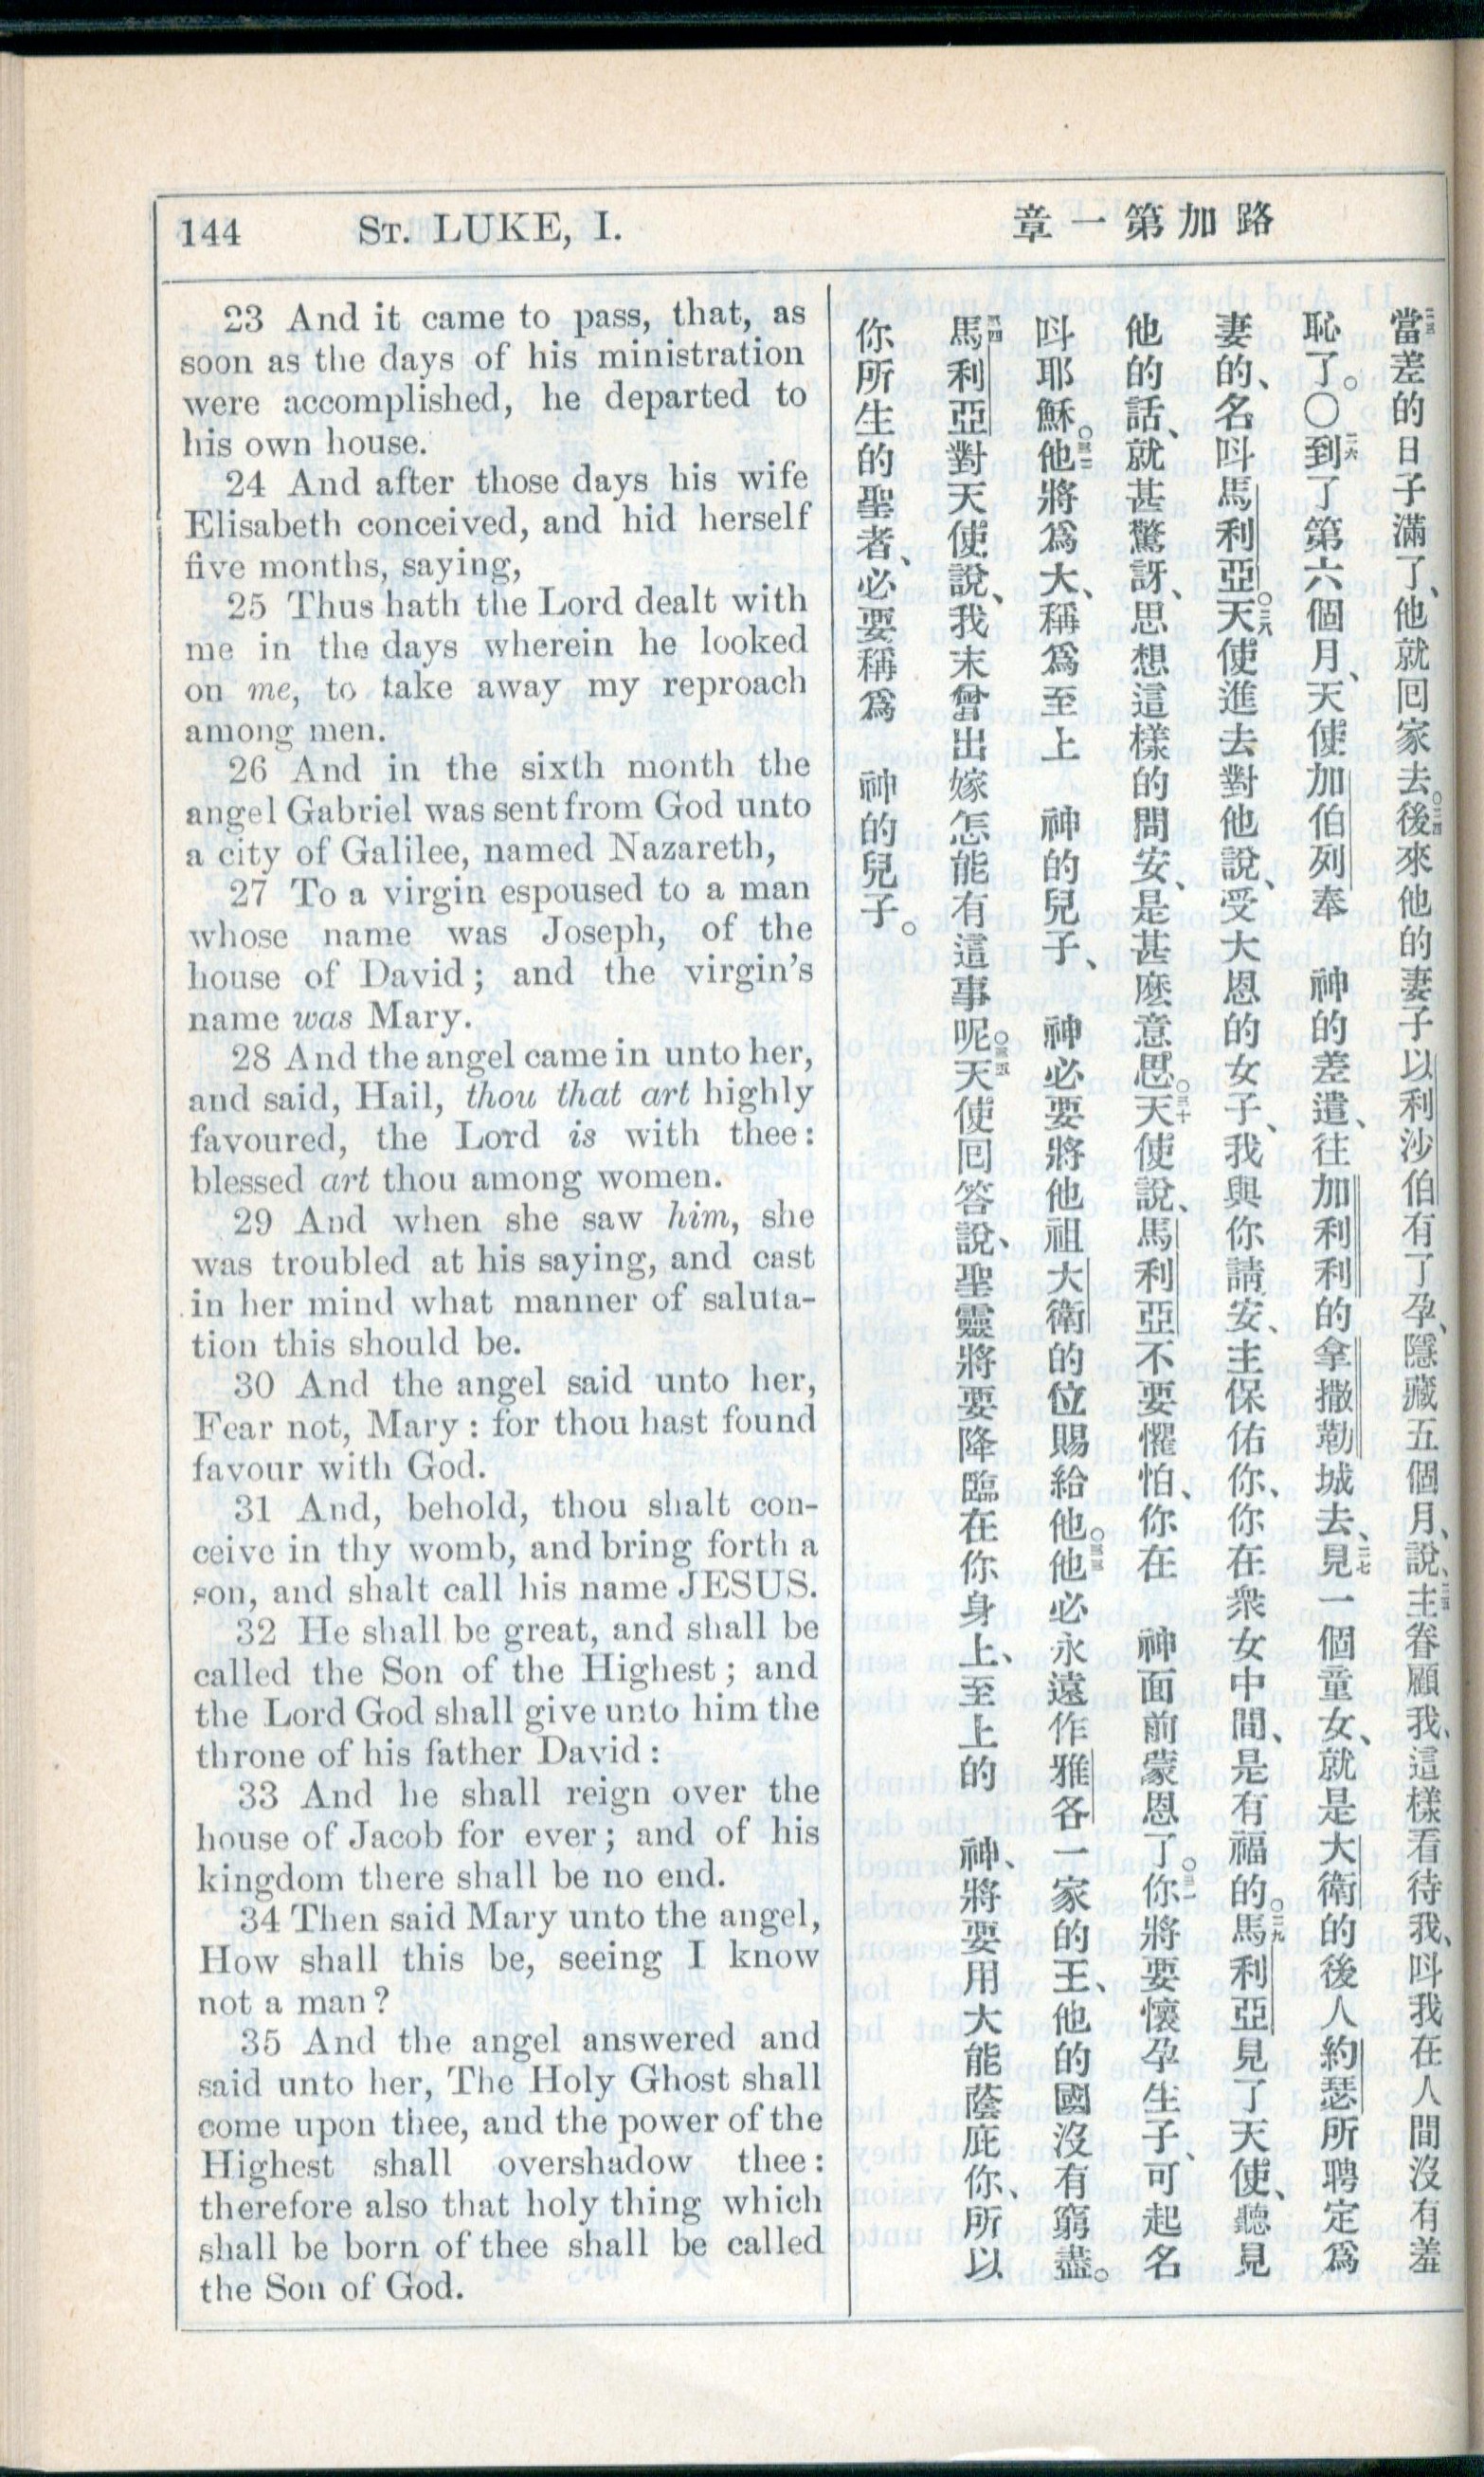 144 ST. LUKE, I. 路加第一章
23 And it came to pass, that, as
soon as the days of his ministration
were accomplished, he departed to
his own house.
24 And after those days his wife
Elisabeth conceived, and hid herself
five months, saying,
25 Thus hath the Lord dealt with
me in the days wherein he looked
on me, to take away my reproach
among men.
26 And in the sixth month the
angel Gabriel was sent from God unto
a city of Galilee, named Nazareth,
27 To a virgin espoused to a man
whose name was Joseph, of the
house of David; and the virgin's
name was Mary.
28 And the angel came in unto her,
and said, Hail, thou that art highly
favoured, the Lord is with thee:
blessed art thou among women.
29 And when she saw him, she
was troubled at his saying, and cast
in her mind what manner of saluta-
tion this should be.
30 And the angel said unto her,
Fear not, Mary: for thou hast found
favour with God.
31 And, behold, thou shalt con-
ceive in thy womb, and bring forth a
son, and shalt call his name JESUS.
32 He shall be great, and shall be
called the Son of the Highest; and
the Lord God shall give unto him the
throne of his father David:
33 And he shall reign over the
house of Jacob for ever; and of his
kingdom there shall be no end.
34 Then said Mary unto the angel,
How shall this be, seeing I know
not a man?
35 And the angel answered and
said unto her, The Holy Ghost shall
come upon thee, and the power of the
Highest shall overshadow thee:
therefore also that holy thing which
shall be born of thee shall be called
the Son of God.
二三當差的日子滿了、他就回家去。二四後來他的妻子以利沙伯有了孕、隱藏五個月、說、二五主眷顧我、這樣看待我、呌我在人間沒有羞
恥了。〇二六到了第六個月、天使加伯列奉 神的差遣、往加利利的拿撒勒城去、二七見一個童女、就是大衛的後人約瑟所聘定爲
妻的、名呌馬利亞。二八天使進去對他說、受大恩的女子、我與你請安、主保佑你、你在衆女中間、是有福的。二九馬利亞見了天使、聽見
他的話、就甚驚訝、思想這樣的問安、是甚麽意思。三十天使說、馬利亞不要懼怕、你在 神面前蒙恩了。三一你將要懷孕生子、可起名
呌耶穌。三二他將爲大、稱爲至上 神的兒子、 神必要將他祖大衛的位賜給他。三三他必永遠作雅各一家的王、他的國沒有窮盡。
三四馬利亞對天使說、我未曾出嫁怎能有這事呢。三五天使回答說、聖靈將要降臨在你身上、至上的 神、將要用大能蔭庇你、所以
你所生的聖者、必要稱爲 神的兒子。